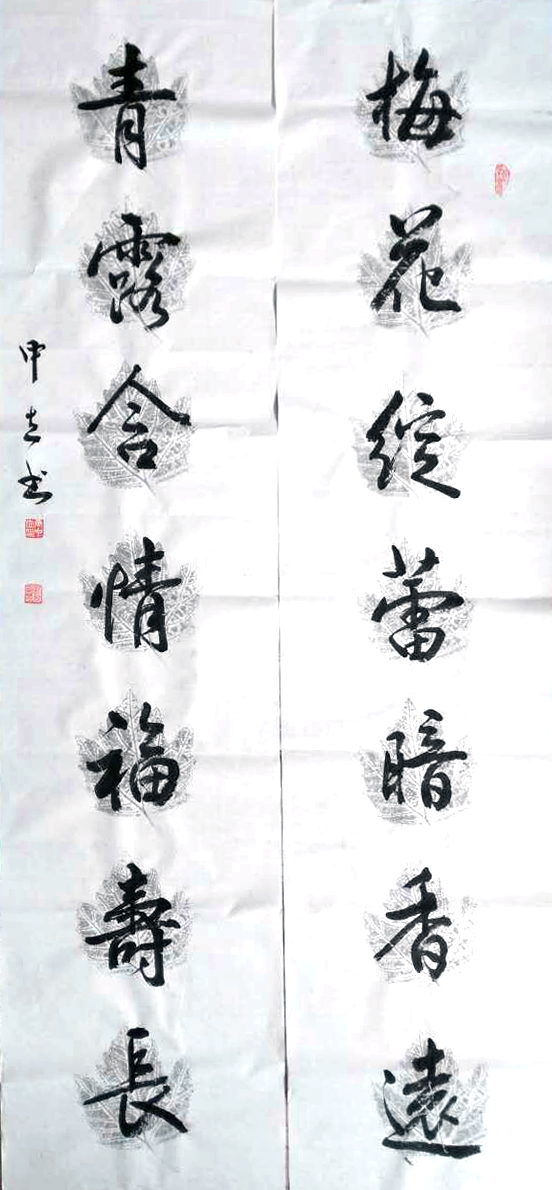 梅花綻蕾暗香遠
青露含情福壽長
申立书